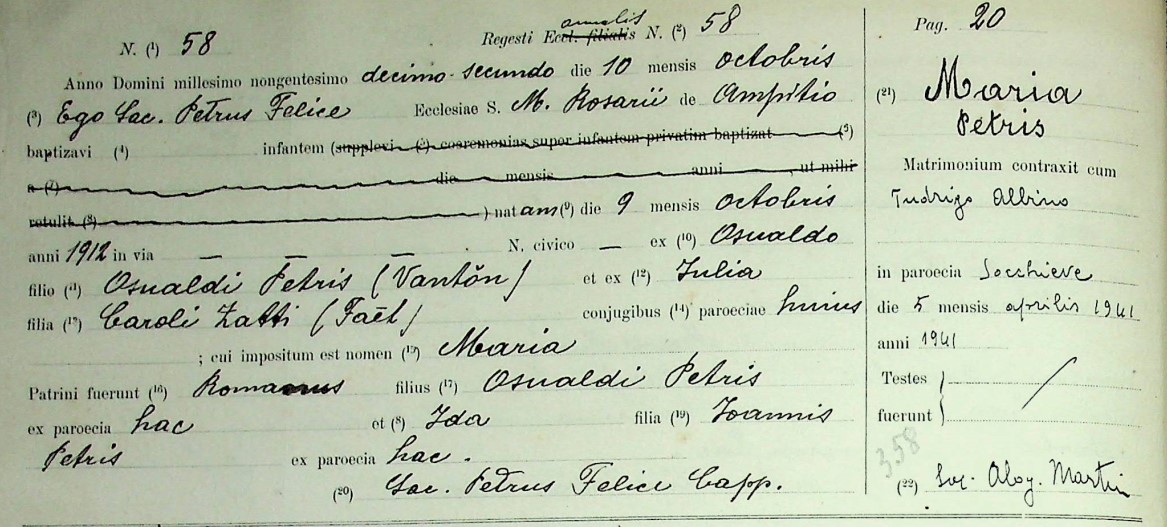 N. (1) 58
Regesti annalis Eccl. filialis N. (2) 58
Anno Domini millesimo nongentesimo decimo secundo die 10 mensis octobris
(3) Ego Sac. Petrus Felice Ecclesiae S. M. Rosarii de Ampitio
baptizavi (4) infantem (supplevi (5) coeremonias super infantem privatim baptizat (5)
a (7) die mensis anni , ut mihi
retulit (8) ) natam (9) die 9 mensis octobris
anni 1912 in via — N. civico — ex (10) Osualdo
filio (11) Osualdi Petris (Vantŏn) et ex (12) Iulia
filia (13) Caroli Zatti (Faēt) conjugibus (14) paroeciae huius
; cui impositum est nomen (15) Maria
Patrini fuerunt (16) Romanus filius (17) Osualdi Petris
ex paroecia hac et (8) Ida filia (19) Ioannis
Petris ex paroecia hac.
(20) Sac. Petrus Felice Capp.
Pag. 20
(21) Maria
Petris
Matrimonium contraxit cum
Iudrigo Albino
in paroecia Socchieve
die 5 mensis aprilis 1941
anni 1941
Testes
fuerunt
358
(22) Sac. Aloy. Martin